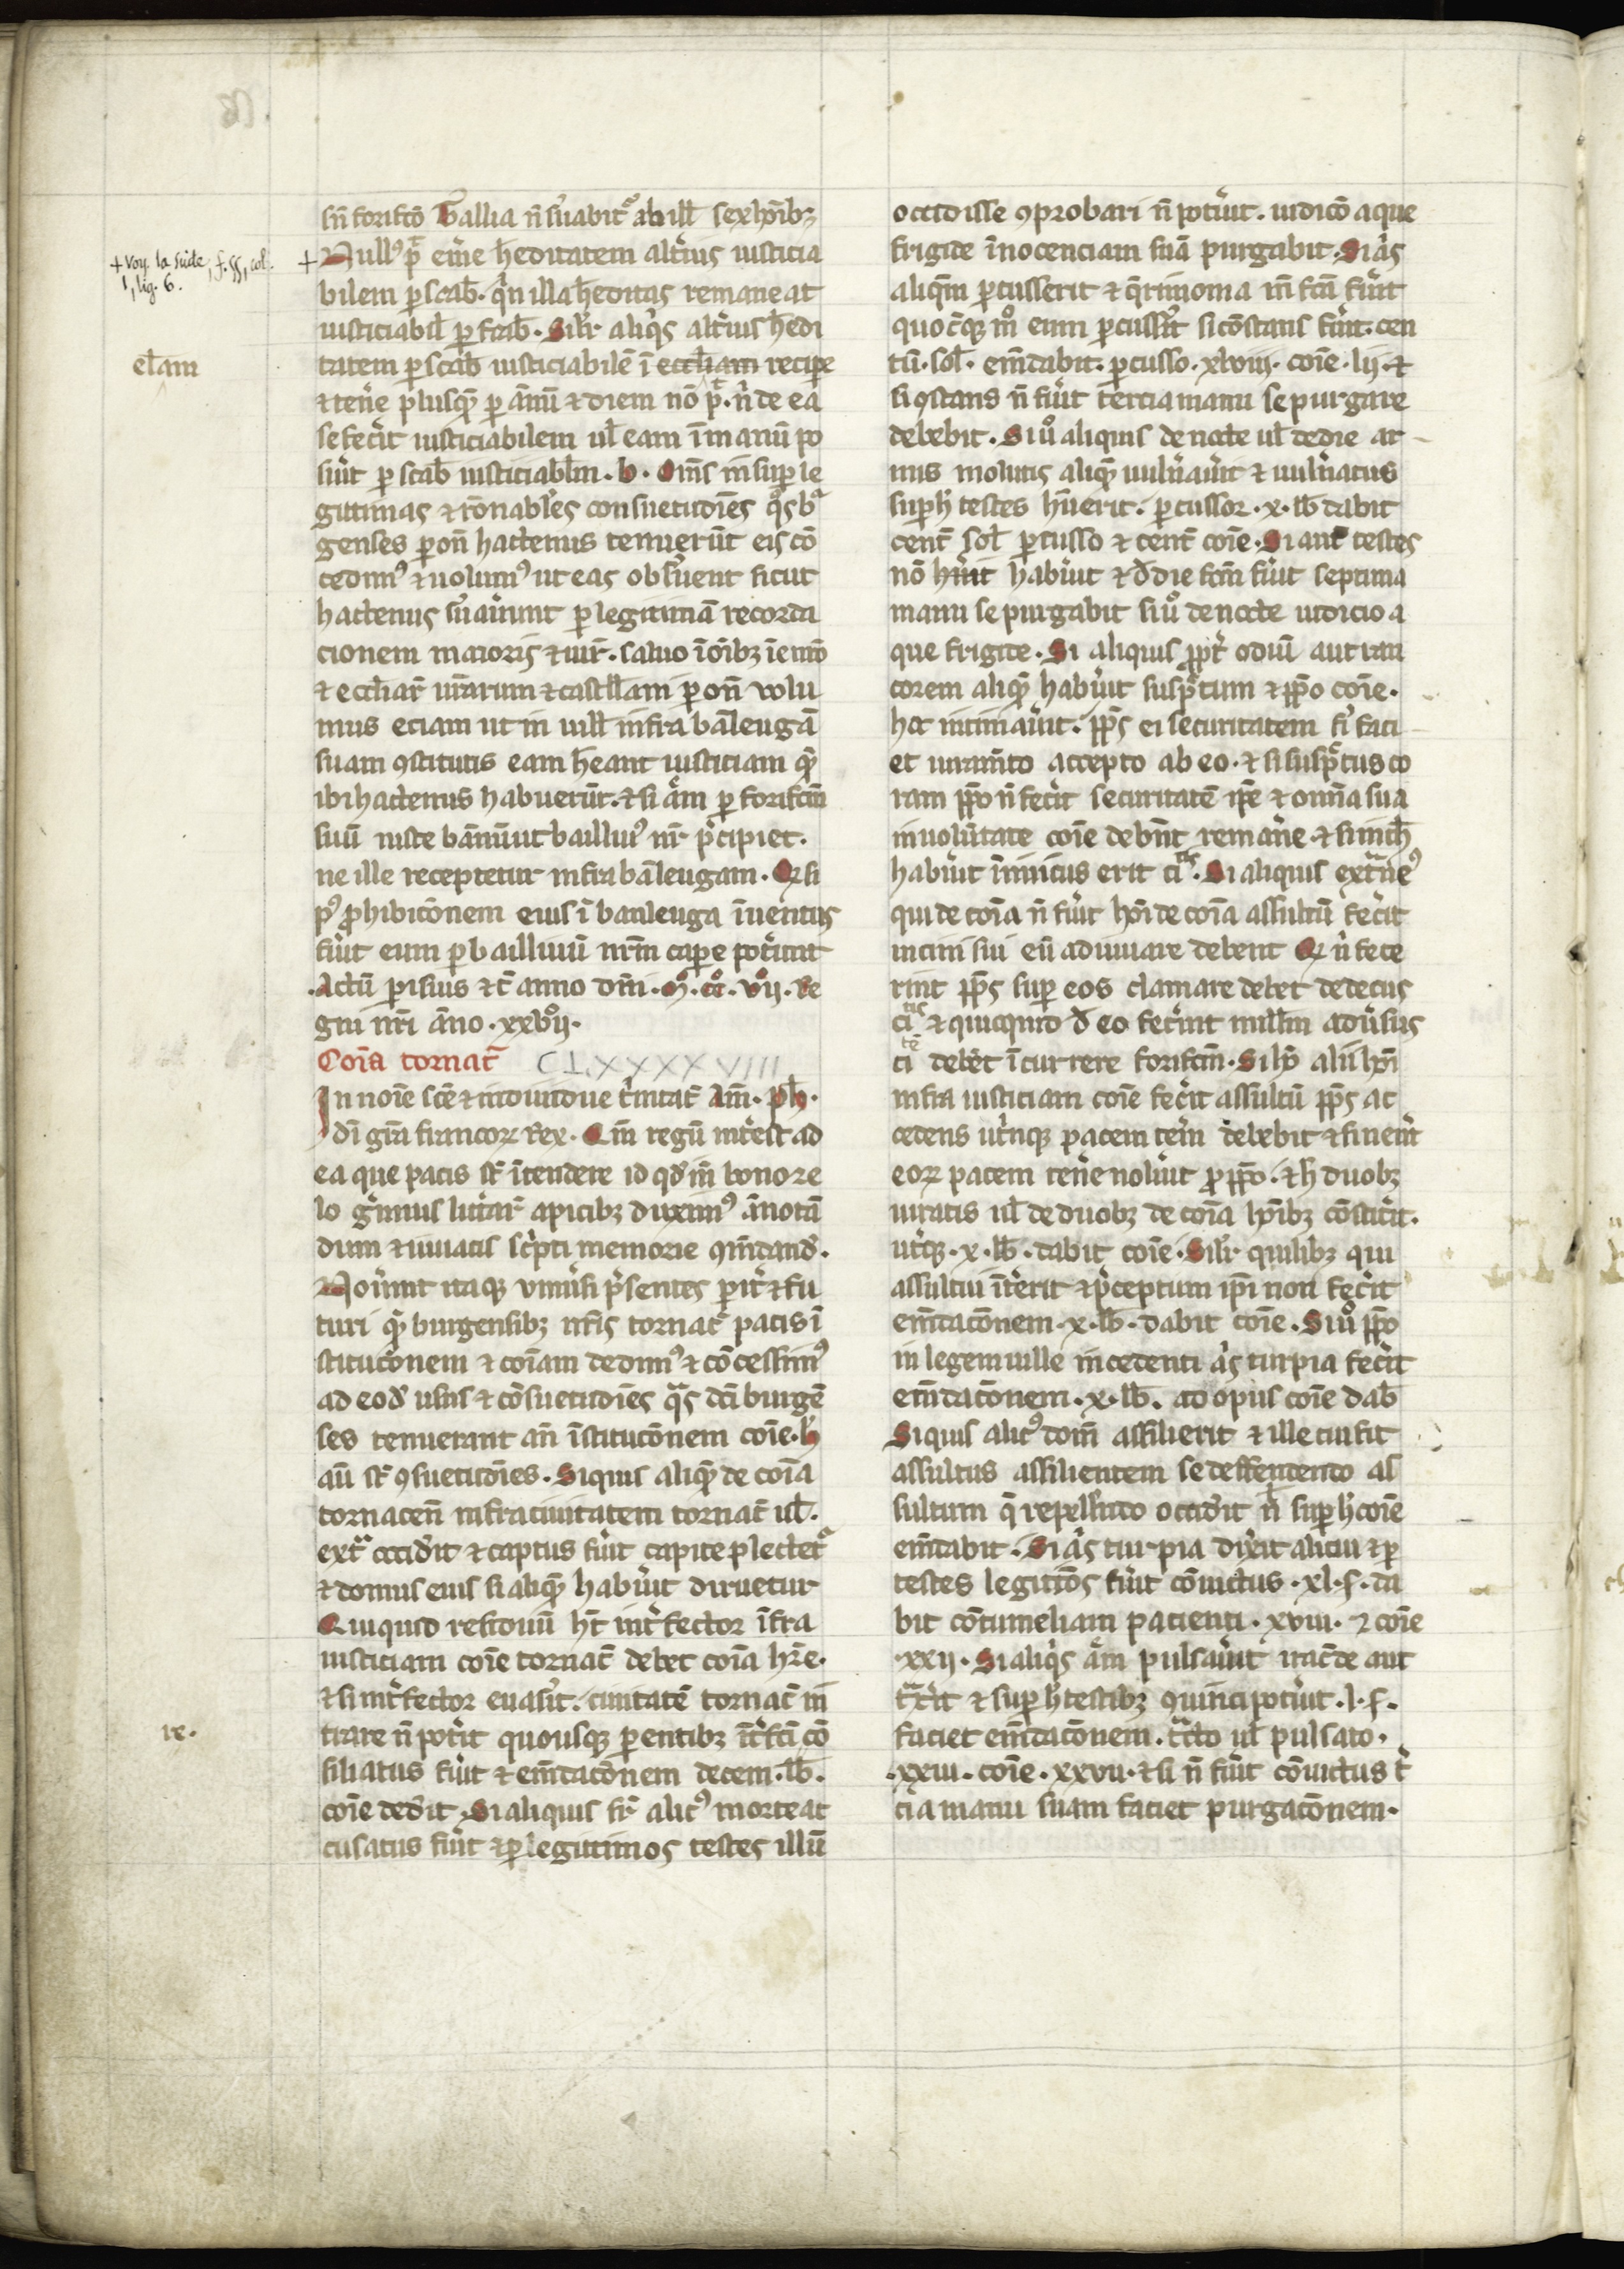 sñ forifcõ Tallia ñ s'uabit᷒ ab ill sex hoĩbꝫ
+ Null᷒ p̃t em̃e h̃editatem alt'ius iusticia
+ Voy. la suite, f. 55, col. 1, lig. 6.
bilem p scab̃. q'n illa h̃editas remaneat
iusticiabil p scab̃. Silr̃ aliq's alt'ius h̃edi
el̃am
tatem p scab̃ iusticiabilẽ ĩ eccl̃iam recipe
& ten̾e plusq̃ p ãnũ & diem nõ p̃t. n̾ de ea
se fec'it iusticiabilem ul̃ eam ĩ manũ po
su'it p scab̃ iusticiabl̃m. b. Om̃s insup le
gittimas & rõnabl'es consuetudĩes q̃s b᷒
genses peroñ hactenus tenuerũt eis cõ
cedim᷒ & uolum᷒ ut eas obs'uent sicut
hactenus s'uau'unt p legitimã recorda
cionem maioris & iur̃. saluo ĩ õibꝫ iure nr̃o
& eccl̃iar̃ nr̃arum & castell̃ani peroñ volu
mus eciam ut in uill infra bãleugã
suam ꝯstitutis eam h̃eant iusticiam q̃
ibi hactenus habuerũt. & si q̃m p forifcm̃
suũ iuste bãniu'it bailliu᷒ nr̃ p'cipiet.
ne ille receptetur infra bãleugam. Et si
p᷒ ꝓhibicõnem eius ĩ banleuga ĩuentus
fu'it eum p bailliuũ nr̃m cape pot'unt
Actũ parisius &c̃ anno dñi. M°. cc°. vij°. Re
gni nr̃i ãno. xxviij°.
Coĩa tornac̃ CLXXXXVIIII
In noĩe sc̃e & indiuidue t'nitat̃ Am̃. Ph̃.
di gr̃a francorꝝ Rex. Qm̃ regũ int'est ad
ea que pacis st̃ ĩtendere id qd̃ in bono ze
lo g'imus litt'ar̃ apicibꝫ duxim᷒ ãnotã
dum & iuuatis sc'pti memorie ꝯm̃dand̃.
Nou'int itaqꝫ vniu'si p'sentes pit' & fu
turi q̃ burgensibꝫ nr̃is tornac̃ pacis ĩ
stitucõnem & coĩam dedim᷒ & cõcessim᷒
ad eosd̃ usus & cõsuetudĩes q̃s dc̃i burgẽ
ses tenuerant añ ĩstitucõnem coĩe. h̃
aũ st̃ ꝯsuetudĩes. Si quis aliq̃ de coĩa
tornaceñ infra ciuitatem tornac̃ ul̃.
ext̃ occid'it & captus fu'it capite plectet᷒
& domus eius si aliq̃ habu'it diruetur
Quiquid residuũ h̃t int'fector ĩfra
iusticiam coĩe tornac̃ debet coĩa hr̃e.
& si int'fector euas'it. ciuitatẽ tornac̃ in
re.
trare ñ pot'it quousqꝫ parentibꝫ ĩt'fc̃i cõ
siliatus fu'it & em̃dacõnem decem. lb̃.
coĩe ded'it. Si aliquis sr̃ alic᷒ morte ac
cusatus fu'it & p legitimos testes illũ
occidisse ꝯprobari ñ pot'it. iudicõ aque
frigide ĩnocenciam suã purgabit. Si q̃s
aliq̃m pcusserit & q̃rimonia in fc̃a fu'it
quocq̃ꝫ m° eum pcuss'it si cõstans fu'it. cen
tũ. sol̃. em̃dabit. pcusso. xlviij. coĩe. lij. &
si ꝯstans ñ fu'it tercia manu se purgare
debebit. Siu° aliquis de nocte ul̃ de die ar
mis molutis aliq̃ uuln'au'it & uuln'atus
sup h̃ testes h̃uerit. pcussor. x. lb̃ dabit
cent̃ sol̃ pcusso & cent̃ coĩe. Si aut̃ testes
nõ h̶u̶'i̶t̶ habu'it & d̃ die fcm̃ fu'it septima
manu se purgabit siu° de nocte iudicio a
que frigide. Si aliquis ꝓpt' odiũ aut ran
corem aliq̃ habu'it susp'tum & ꝑpo coĩe.
hoc intimau'it. ꝑps ei securitatem s' faci
et iuram̃to accepto ab eo. & si susp'tus co
ram ꝑpo ñ fec'it securitatẽ ipẽ & omĩa sua
in uolũtate coĩe deb'nt reman'e. & si nich̃
habu'it inimicus erit ci᷒ᵗⁱˢ. Si aliquis ext̃ne᷒
qui de coĩa ñ fu'it hoĩ de coĩa assultũ fec'it
uicini sui eũ adiuuare debent Et n' fece
rint ꝑps sup eos clamare debet dedecus
ciᵗⁱˢ & quicquid d̃ eo fec'int nullm̃ adu'sus
ciᵗẽ debet ĩcurrere forifcm̃. Si hõ alii hoĩ
infra iusticiam coĩe fec'it assultũ ꝑps ac
cedens ut'nqꝫ pacem ten'i debebit & si neut'
eorꝝ pacem ten̾e nolu'it p ꝑpo. & h̃ duobꝫ
iuratis ul̃ de duobꝫ de coĩa hoĩbꝫ cõstit'it.
ut'qꝫ. x. lb̃. dabit coĩe. Silr̃ quilibꝫ qui
assultui ĩt'erit & p'ceptum ip̃i non fec'it
em̃dacõnem. x. lb̃. dabit coĩe. Siu° ꝑpo
in legem uille incedenti q̃s turpia fec'it
em̃dacõnem. x. lb̃. ad opus coĩe dab̃
Si quis alic᷒ domũ assilierit & ille cui fit
assultus assilientem se deffendendo as
sultum q̃ repellendo occid'it n' sup h̃ coĩe
em̃dabit. Si q̃s turpia dix'it alicui & p
testes legitiõs fu'it cõuictus. xl. s. da
bit cõtumeliam pacienti. xviii. & coĩe
xxij. Si aliq's q̃m pulsau'it iracũde aut
t̃x'it & sup h̃ testibꝫ ꝯuinci pot'it. l. s.
faciet em̃dacõnem. t̃cto ul̃ pulsato.
xxiii. coĩe. xxvii. & si ñ fu'it cõuictus t'
cia manu suam faciet purgacõnem.